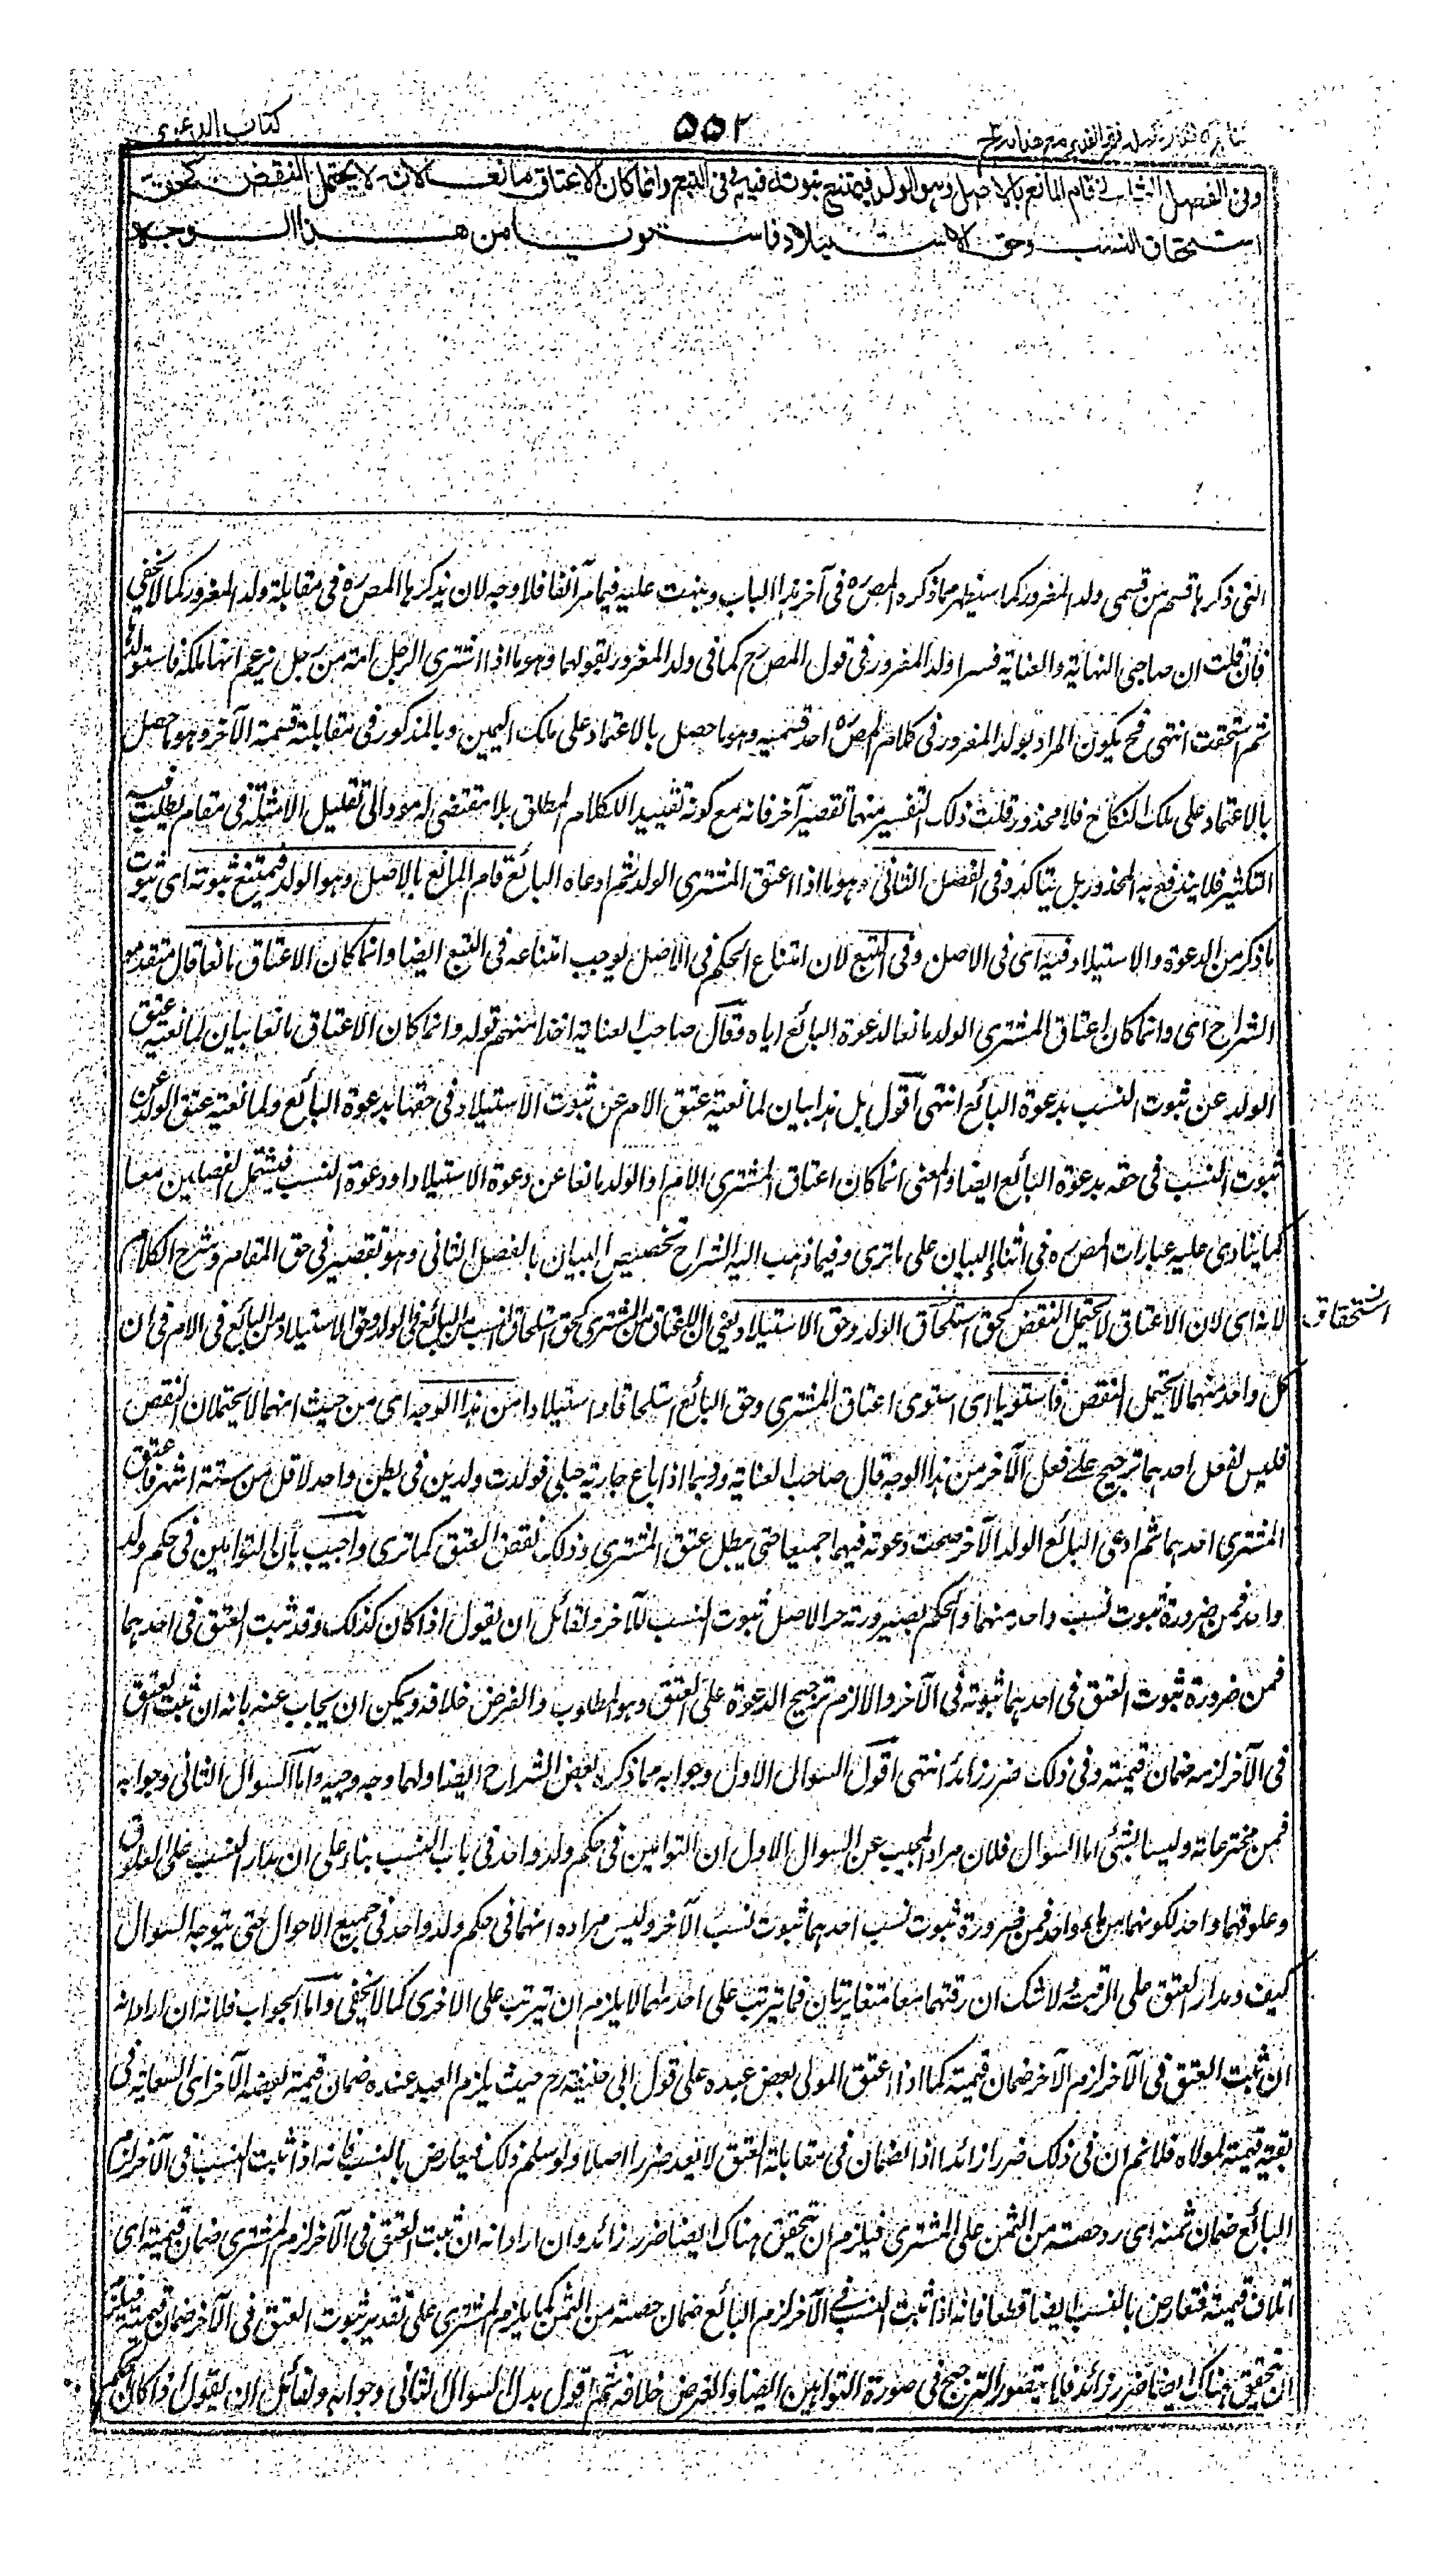 كتاب الدعوى
۵۵۲
نتائج الافكار تكملة فتح القدير مع هدايه ج
وفي الفصل الثاني قام المانع بالاصل وهو الولد فيمتنع ثبوته فيه وفي التبع وانما كان الاعتاق مانعا لانه لا يحتمل النقض كحق
استحقاق النسب وحق الاستيلاد فاستويا من هذا الوجه
التي ذكرها قسم من قسمي ولد المغرور كما سيظهر مما ذكره المص ره في آخر هذا الباب ونبهت عليه فيما مر آنفا فلا وجه لان يذكرها المص ره في مقابلة ولد المغرور كما لا يخفى
فان قلت ان صاحبي النهاية والعناية فسرا ولد المغرور في قول المص رح كما في ولد المغرور بقولهما وهو ما اذا اشترى الرجل امة من رجل يزعم انها ملكه فاستولدها
ثم استحقت انتهى فح يكون المراد بولد المغرور في كلام المص ره احد قسميه وهو ما حصل بالاعتماد على ملك اليمين وبالمذكور في مقابلته قسمه الآخر وهو ما حصل
بالاعتماد على ملك النكاح فلا محذور قلت ذلك التفسير منهما تقصير آخر فانه مع كونه تقييد الكلام المطلق بلا مقتضى له مود الى تقليل الامثلة في مقام يطلب فيه
التكثير فلا يندفع به المحذور بل يتاكد وفي الفصل الثاني وهو ما اذا اعتق المشتري الولد ثم ادعاه البائع قام المانع بالاصل وهو الولد فيمتنع ثبوته اى ثبوت
ما ذكر من الدعوة والاستيلاد فيه اى في الاصل وفي التبع لان امتناع الحكم في الاصل يوجب امتناعه في التبع ايضا وانما كان الاعتاق مانعا قال متقدمو
الشراح اى وانما كان اعتاق المشتري الولد مانعا لدعوة البائع اياه وقال صاحب العناية اخذا منهم قوله وانما كان الاعتاق مانعا بيان لمانعية عتق
الولد عن ثبوت النسب بدعوة البائع انتهى اقول بل هذا بيان لمانعية عتق الام عن ثبوت الاستيلاد في حقها بدعوة البائع ولمانعية عتق الولد عن
ثبوت النسب في حقه بدعوة البائع ايضا والمعنى انما كان اعتاق المشتري الام او الولد مانعا عن دعوة الاستيلاد او دعوة النسب فيشتمل الفصلين معا
كما ينادى عليه عبارات المص ره في اثناء البيان على ما ترى وفيما ذهب اليه الشراح تخصيص البيان بالفصل الثاني وهو تقصير في حق المقام وشرح الكلام
لانه اى لان الاعتاق لا يحتمل النقض كحق استلحاق الولد وحق الاستيلاد يعني ان الاعتاق من المشتري كحق استلحاق النسب من البائع في الولد وحق الاستيلاد من البائع في الام في ان
استحقاق
كل واحد منهما لا يحتمل النقض فاستويا اى استوى اعتاق المشتري وحق البائع استلحاقا واستيلادا من هذا الوجه اى من حيث انهما لا يحتملان النقض
فليس لفعل احدهما ترجيح على فعل الآخر من هذا الوجه قال صاحب العناية ونوقض بما اذا باع جارية حبلى فولدت ولدين في بطن واحد لاقل من ستة اشهر فاعتق
المشتري احدهما ثم ادعى البائع الولد الآخر صحت دعوته فيهما جميعا حتى يبطل عتق المشتري وذلك نقض العتق كما ترى واجيب بان التوامين في حكم ولد
واحد فمن ضرورة ثبوت نسب واحد منهما والحكم بصيرورته حر الاصل ثبوت النسب للآخر ولقائل ان يقول اذا كان كذلك وقد ثبت العتق في احدهما
فمن ضرورة ثبوت العتق في احدهما ثبوته في الآخر والا لزم ترجيح الدعوة على العتق وهو المطلوب والفرض خلافه ويمكن ان يجاب عنه بانه ان ثبت العتق
في الآخر لزمه ضمان قيمته وفي ذلك ضرر زائد انتهى اقول السوال الاول وجوابه مما ذكره بعض الشراح ايضا ولهما وجه وجيه واما السوال الثاني وجوابه
فمن مخترعاته وليسا بشئ اما السوال فلان مراد المجيب عن السوال الاول ان التوامين في حكم ولد واحد في باب النسب بناء على ان مدار النسب على العلوق
وعلوقهما واحد لكونهما من ماء واحد فمن ضرورة ثبوت نسب احدهما ثبوت نسب الآخر وليس مراده انهما في حكم ولد واحد في جميع الاحوال حتى يتوجه السوال
كيف ومدار العتق على الرقبة ولا شك ان رقبتهما معا متغايرتان فما يترتب على احدهما لا يلزم ان يترتب على الاخرى كما لا يخفى واما الجواب فلانه ان اراد انه
ان ثبت العتق في الآخر لزم الآخر ضمان قيمته كما اذا اعتق المولى بعض عبده على قول ابي حنيفة رح حيث يلزم العبد عنده ضمان قيمة بعضه الآخر اى السعاية في
بقية قيمته لمولاه فلا نم ان في ذلك ضررا زائدا اذ الضمان في مقابلة العتق لا يعد ضررا اصلا ولو سلم ذلك فيعارض بالنسب فانه اذا ثبت النسب في الآخر لزم
البائع ضمان ثمنه اى رد حصته من الثمن على المشتري فيلزم ان يتحقق هناك ايضا ضرر زائد وان اراد انه ان ثبت العتق في الآخر لزم المشتري ضمان قيمته اى
اتلاف قيمته فتعارض بالنسب ايضا قطعا فانه اذا ثبت النسب في الآخر لزم البائع ضمان حصته من الثمن كما يلزم المشتري على تقدير ثبوت العتق في الآخر ضمان قيمته فيلزم
ان يتحقق هناك ايضا ضرر زائد فلا يتصور الترجيح في صورة التوامين ايضا والفرض خلافه ثم اقول بدل السوال الثاني وجوابه ولقائل ان يقول اذا كان حكم